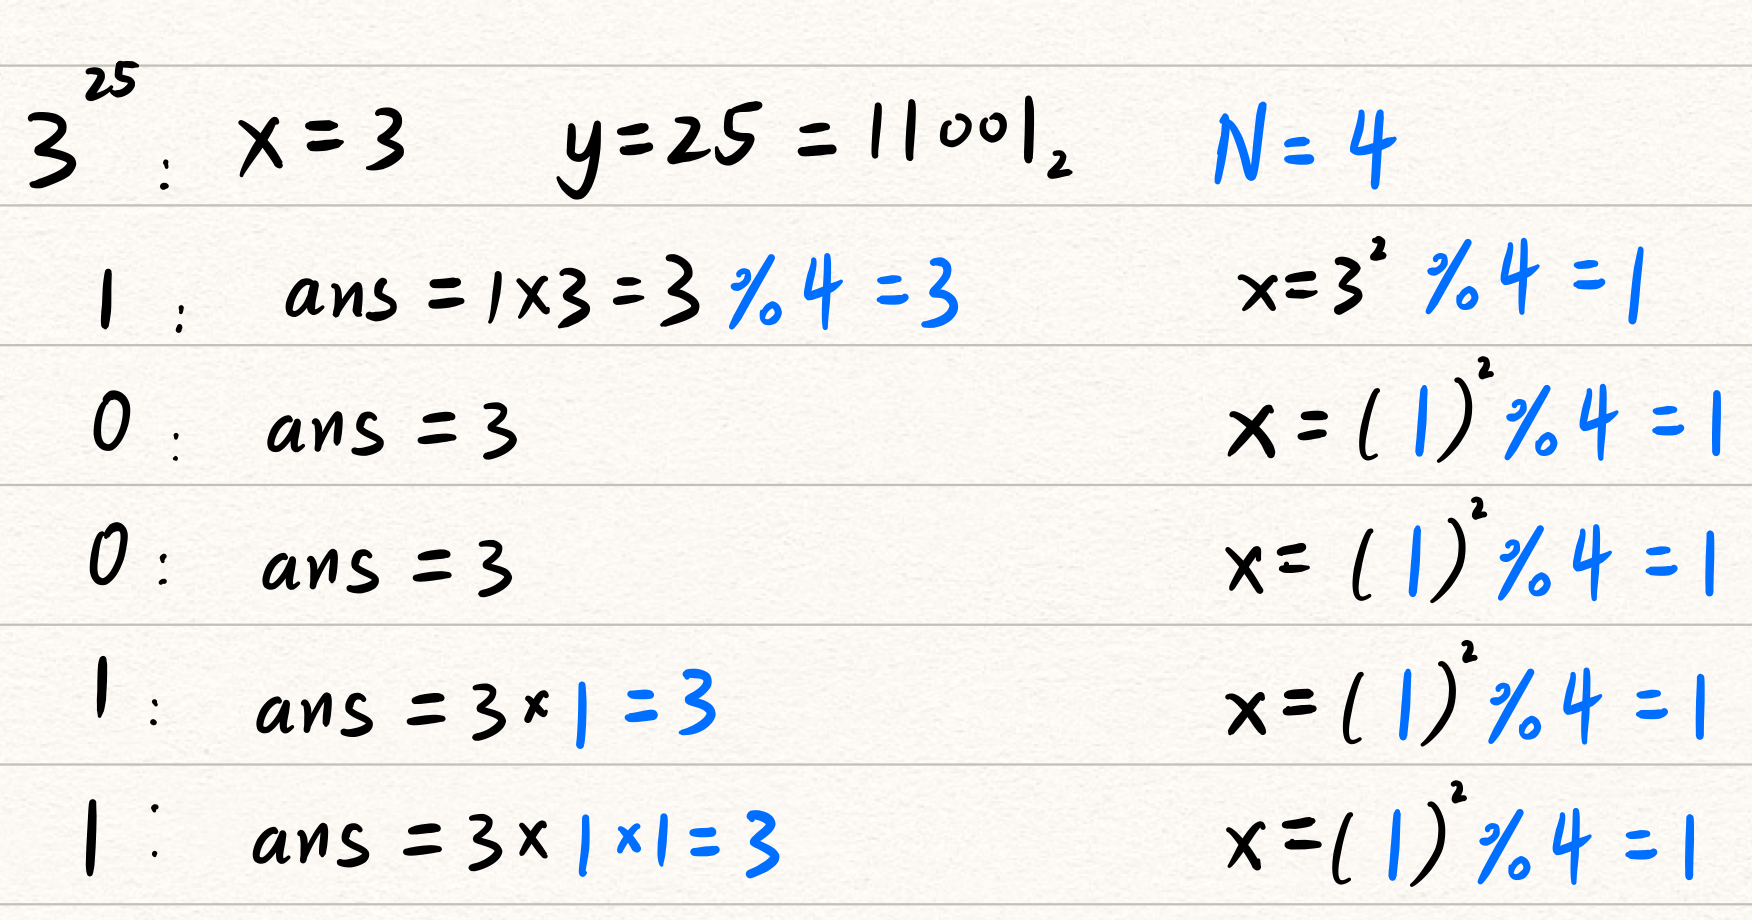 3²⁵: x=3 y=25=11001₂ N=4
1: ans=1×3=3%4=3 x=3²%4=1
0: ans=3 x=(1)²%4=1
0: ans=3 x=(1)²%4=1
1: ans=3×1=3 x=(1)²%4=1
1: ans=3×1×1=3 x=(1)²%4=1